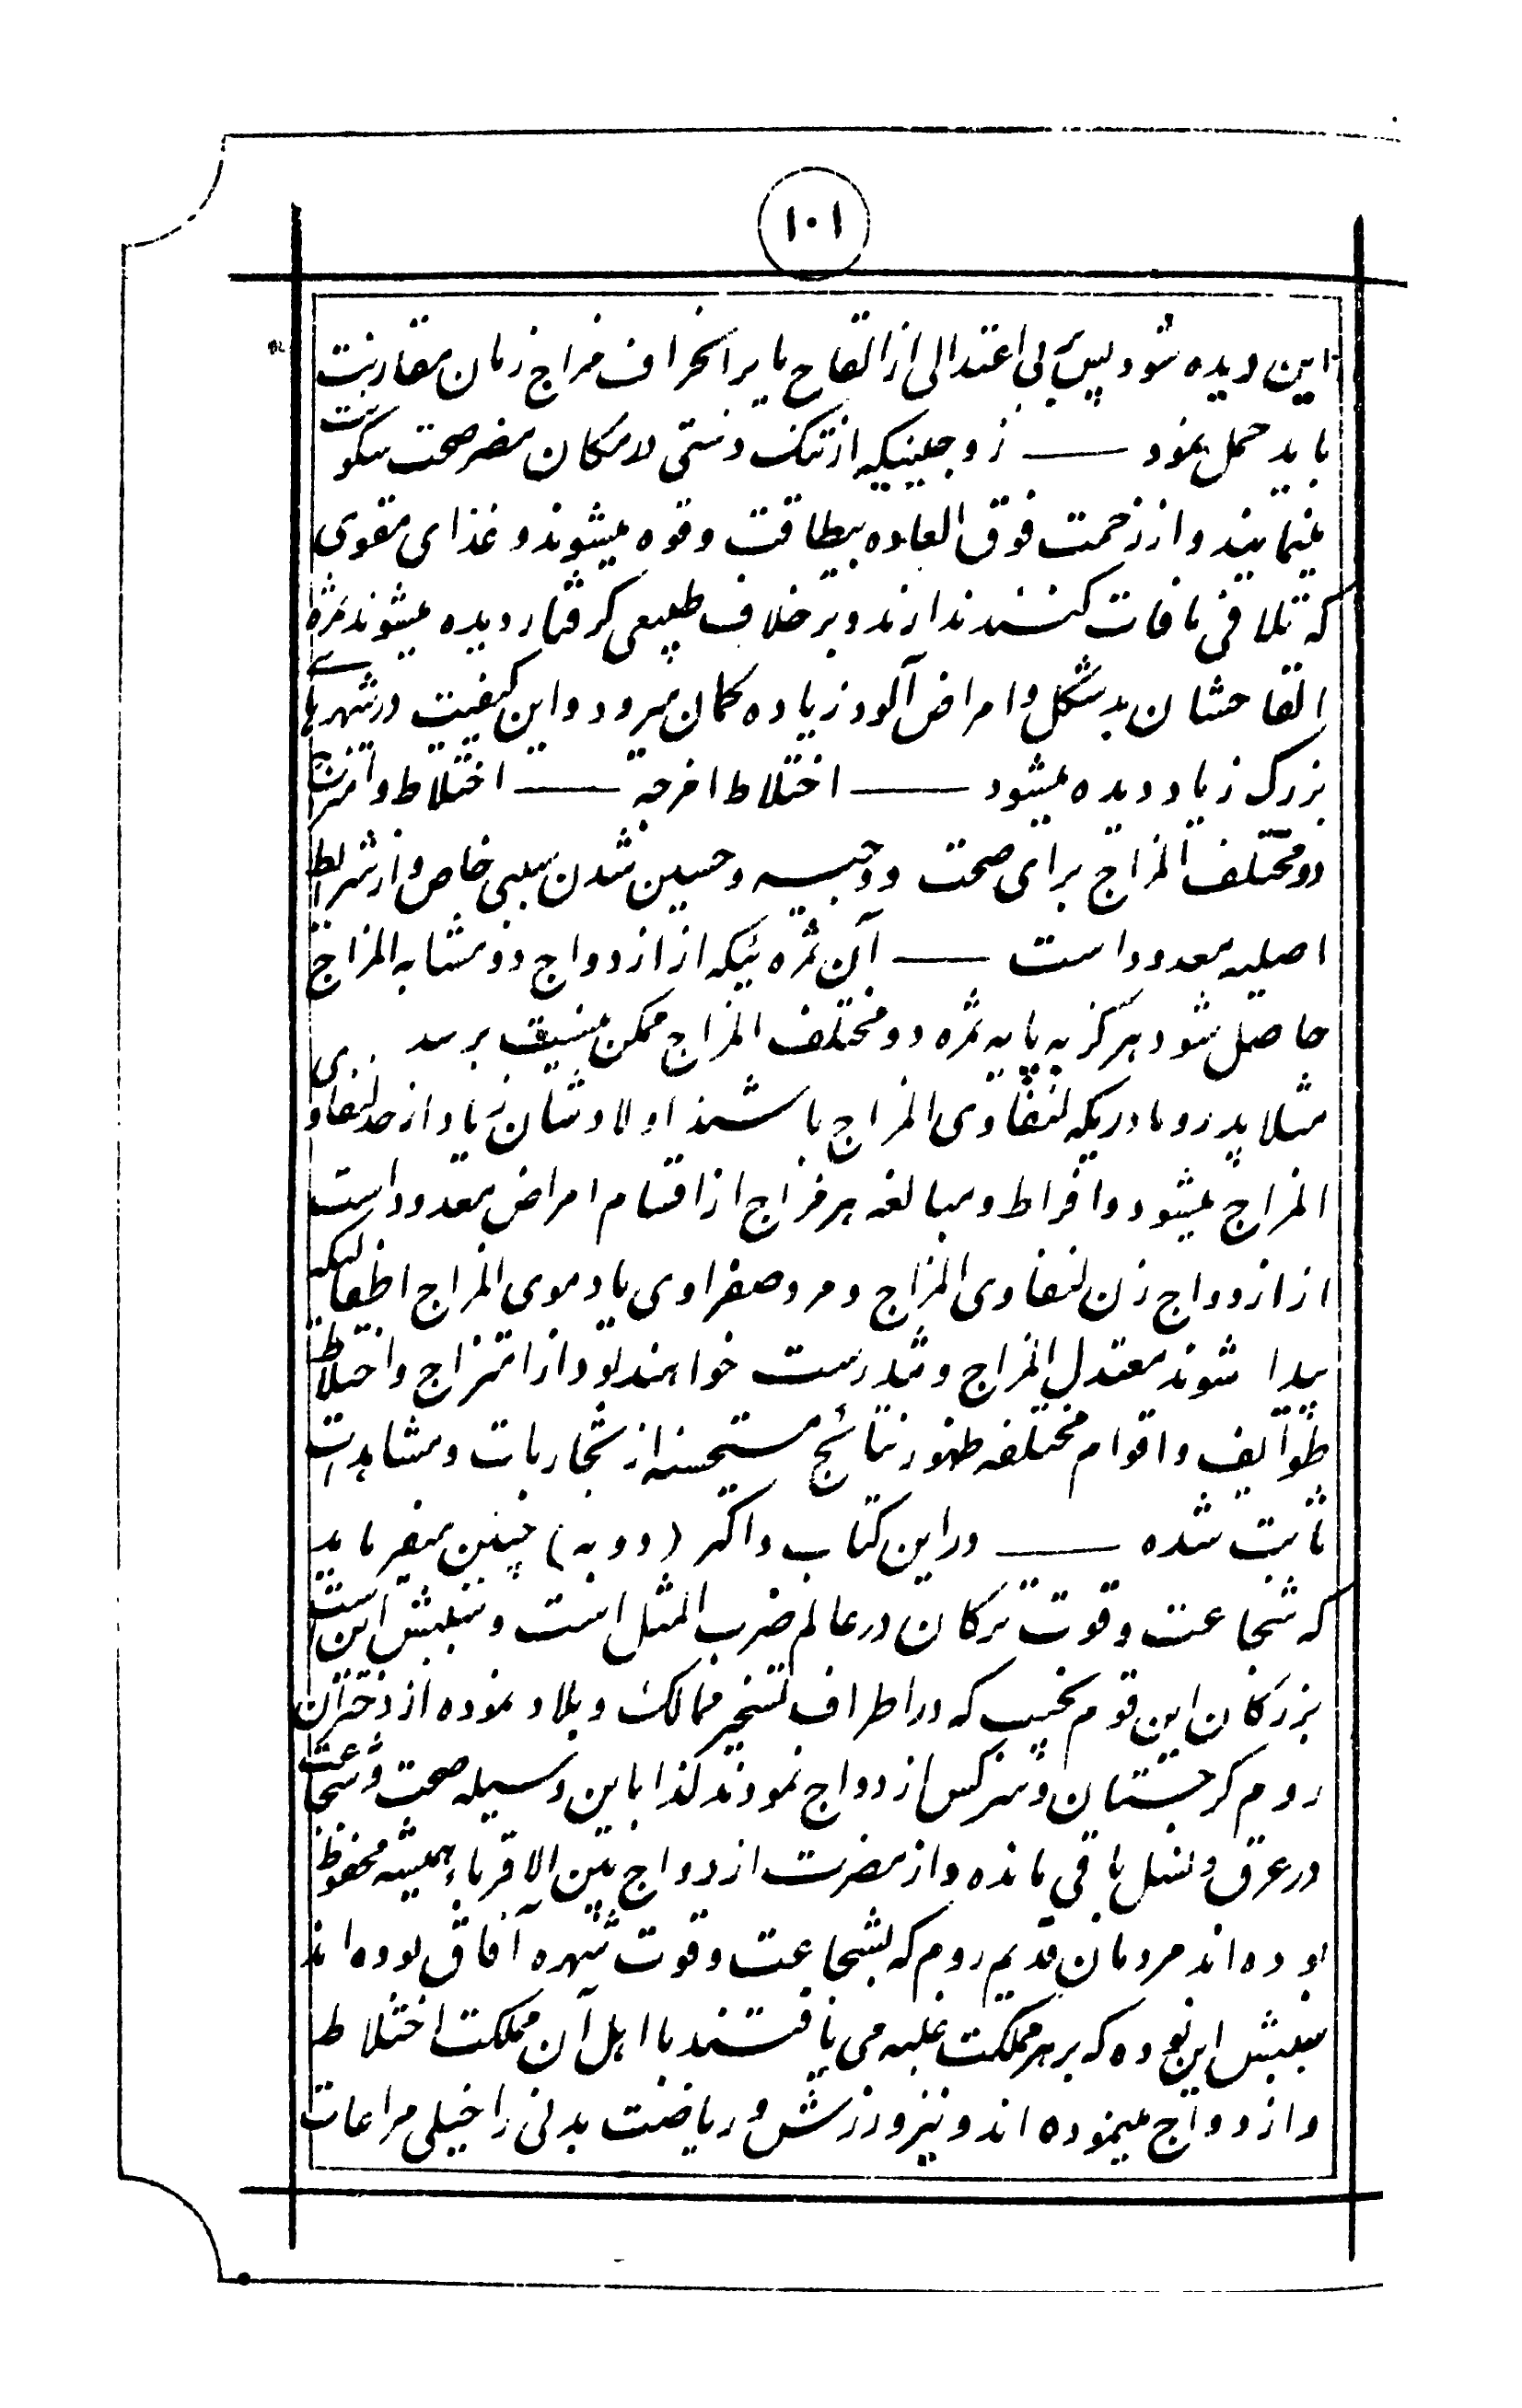 ۱۰۱
این دیده شود پس بی اعتدالی از القاح یا بر انحراف مزاج زمان مقاربت
باید حمل نمود —— زوجینیکه از تنک دستی در مکان مضر صحت سکونت
مینمایند و از زحمت فوق العاده بیطاقت و قوه میشوند و غذای مقوی
که تلافی مافات کنند ندارند و بر خلاف طبیعی کرفتار دیده میشوند ثمره
القاحشان بد شکل و امراض آلود زیاده کمان میرود و این کیفیت در شهرهای
بزرک زیاد دیده میشود —— اختلاط امزجة —— اختلاط و امتزاج
دو مختلف المزاج برای صحت و وجیه و حسین شدن سببی خاص و از شرائط
اصلیه معدود است —— آن ثمره ئیکه از ازدواج دو مشابه المزاج
حاصل شود هرکز به پایه ثمره دو مختلف المزاج ممکن نیست برسد
مثلا پدر و مادریکه لنفاوی المزاج باشند اولادشان زیاد از حد لنفاوی
المزاج میشود و افراط و مبالغه هر مزاج از اقسام امراض معدود است
از ازدواج زن لنفاوی المزاج و مرد صفراوی یا دموی المزاج اطفالیکه
پیدا شوند معتدل المزاج و تندرست خواهند بود از امتزاج و اختلاط
طوائف و اقوام مختلفه ظهور نتائج مستحسنه از تجاربات و مشاهدات
ثابت شده —— در این کتاب داکتر (دوبه) چنین میفرماید
که شجاعت و قوت ترکان در عالم ضرب المثل است و سببش این است
بزرکان این قوم نجیب که در اطراف تسخیر ممالک و بلاد نموده از دختران
روم کرجستان و سرکس ازدواج نمودند لذا باین وسیله صحت و شجاعت
در عرق و نسل باقی مانده و از مضرت ازدواج بین الاقرباء همیشه محفوظ
بوده اند مردمان قدیم روم که بشجاعت و قوت شهره آفاق بوده اند
سببش این بوده که بر هر مملکت غلبه می یافتند با اهل آن مملکت اختلاط
و ازدواج مینموده اند و نیز ورزش و ریاضت بدنی را خیلی مراعات